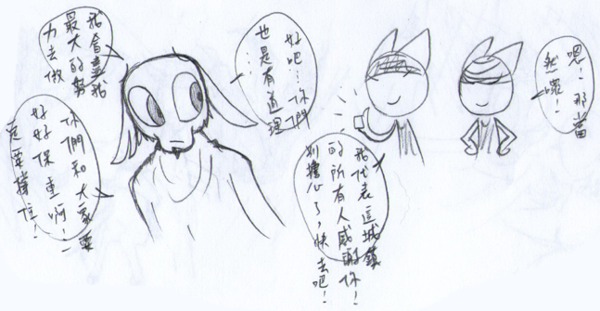 嗯！那當
然囉！
我代表這城鎮
的所有人感謝你！
別擔心了，快去吧！
好吧…你們
也是有道理…
我會盡我
最大的努
力去做
你們和大家要
好好保重啊！一
定要撐住！